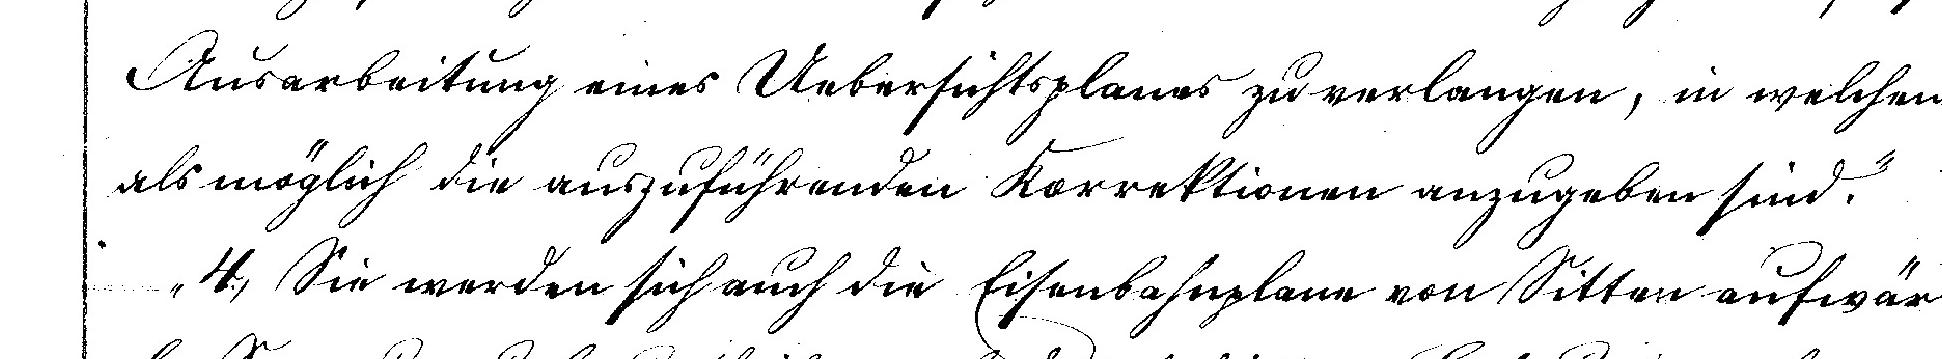 Ausarbeitung eines Uebersichtsplanes zu verlangen, in welchen
als möglich die auszuführenden Korrektionen anzugeben sind."
„4., Sie werden sich auch die Eisenbahnplane von Sitten aufwär